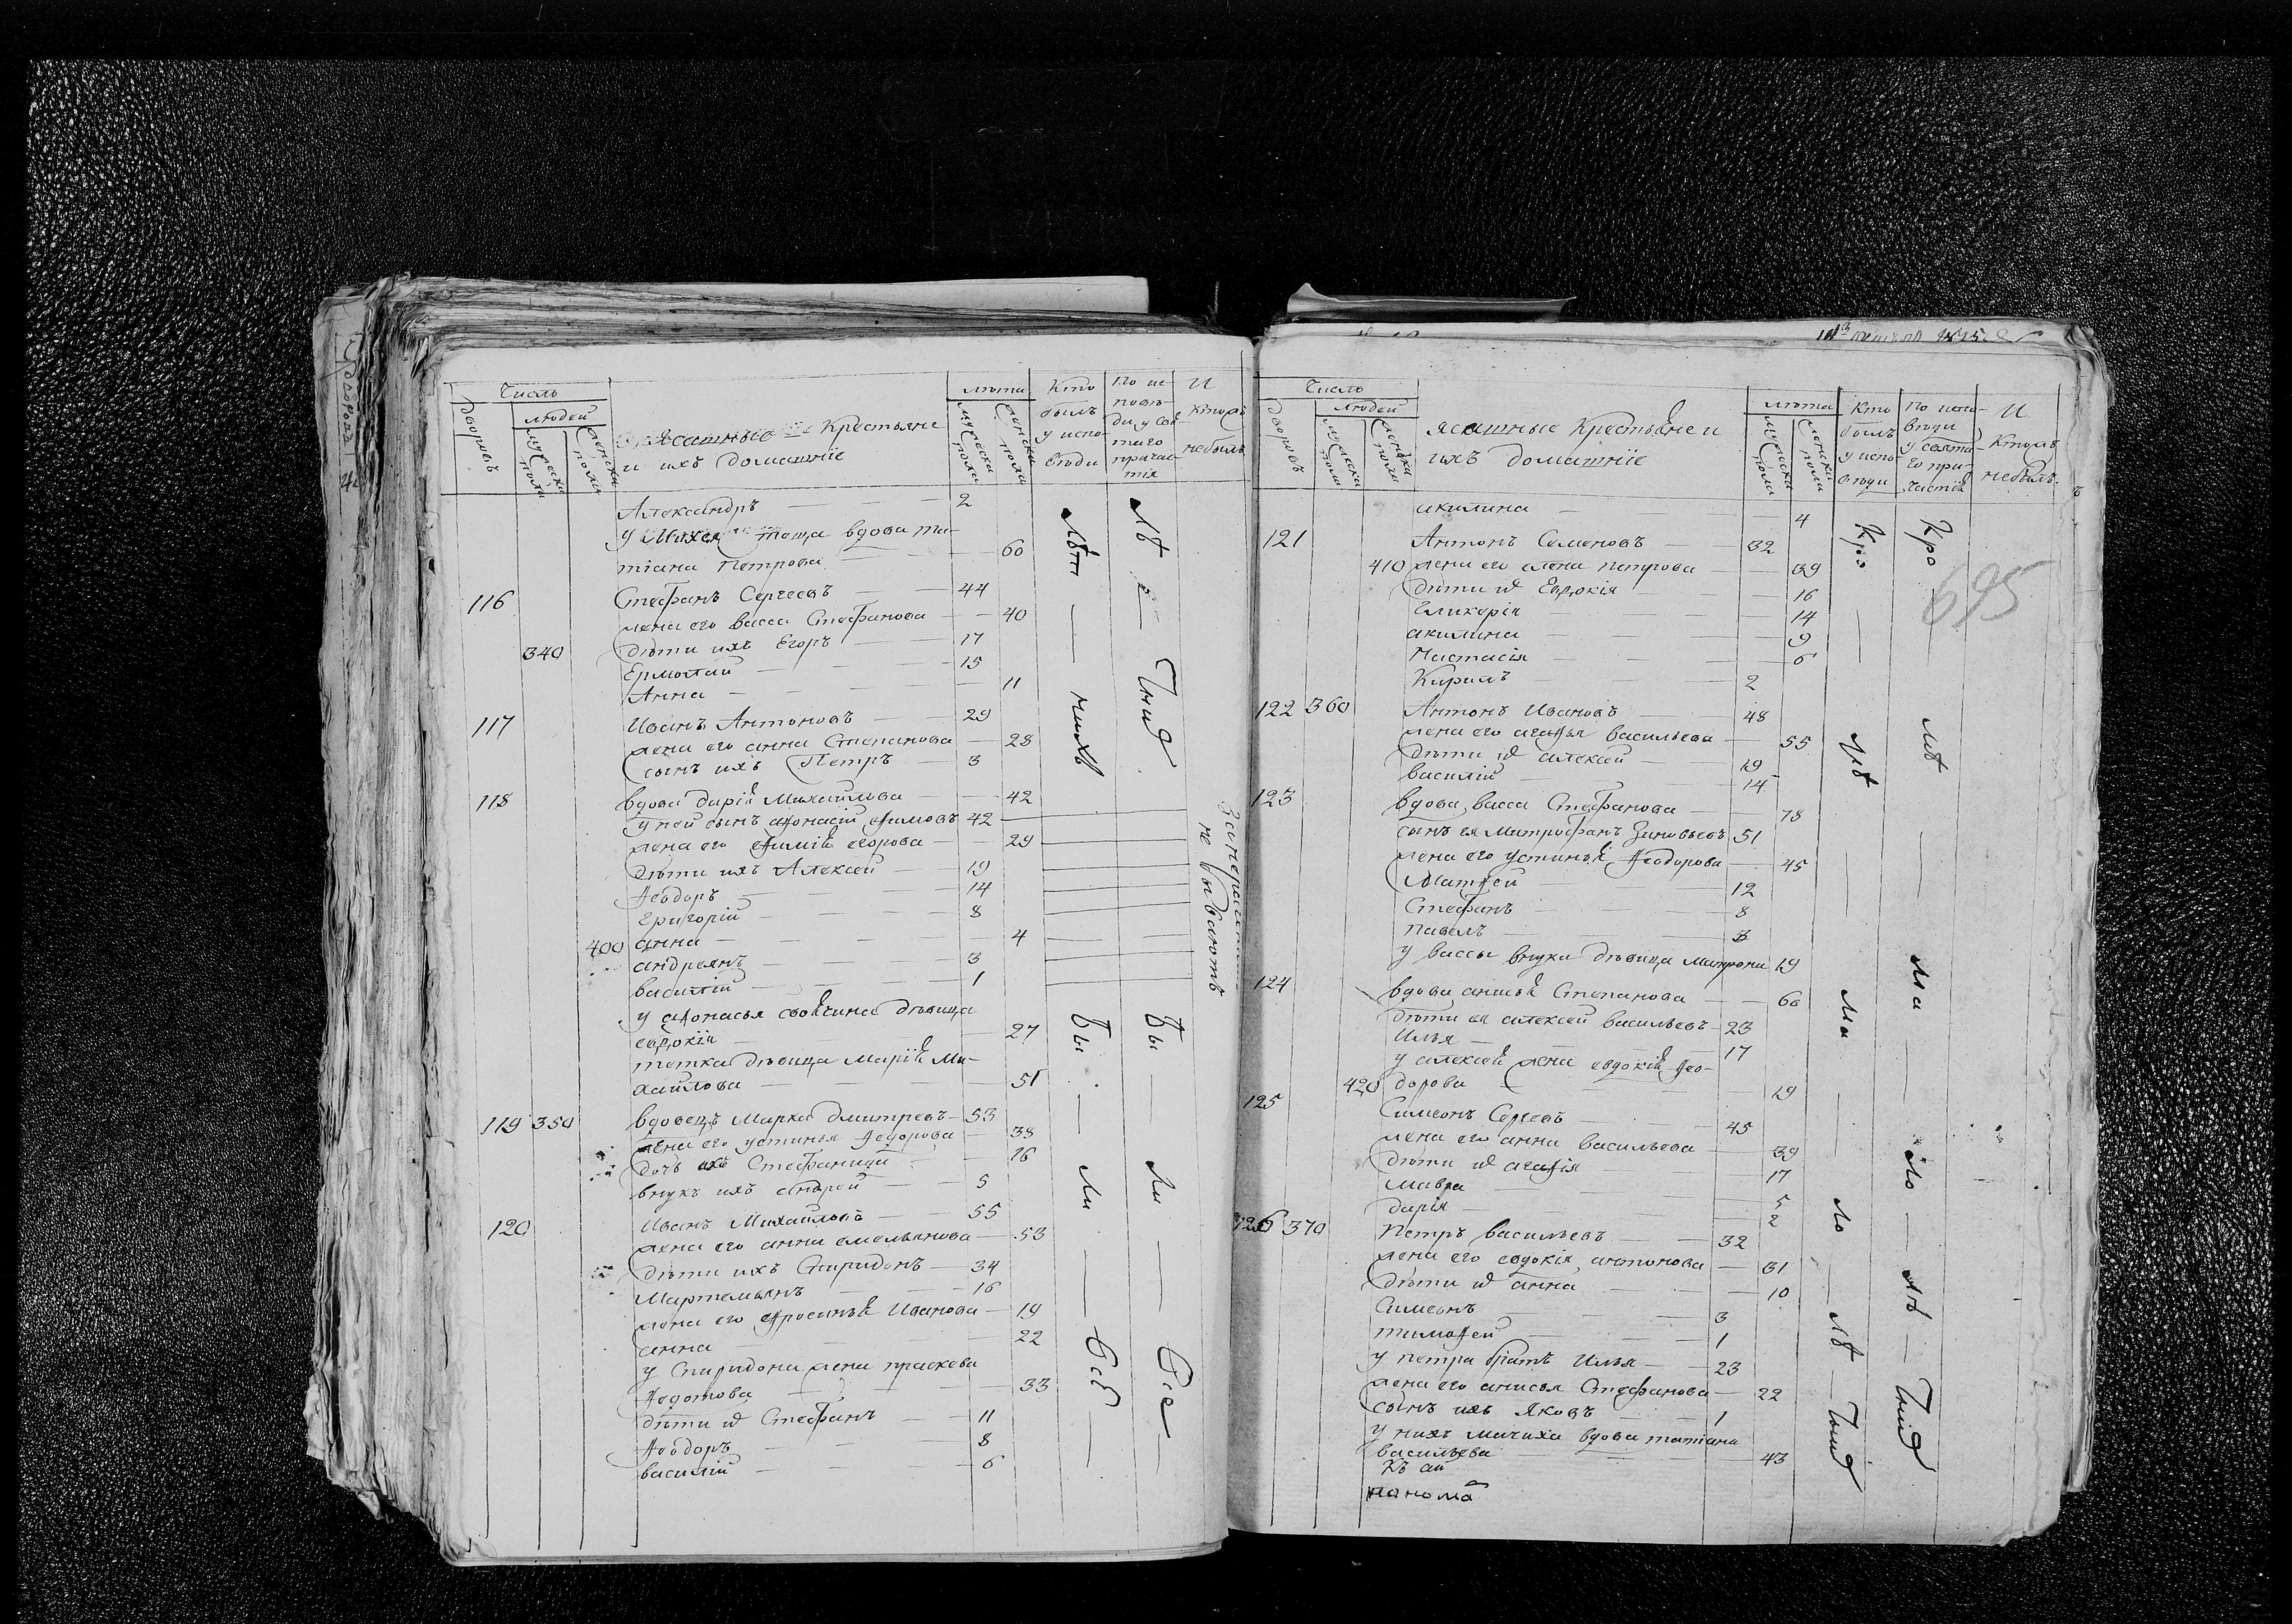 Число
людей
дворовъ
мужеска полу
женска полу
ясашные Крестьяне
и ихъ домашнїе
лѣта
мужеска полу
женска полу
Кто былъ у исповѣди
По исповѣди у святаго причастія
И ктожъ небылъ
Александръ 2
у теща вдова та-
тіана Петрова 60
116 Стефанъ Сергеевъ 44
жена его васса Стефанова 40
340 дѣти ихъ Егоръ 17
Ермолай 15
Анна 11
117 Иванъ Антоновъ 29
жена его анна Степанова 28
сынъ ихъ Петръ 3
118 вдова дарія Михайлова 42
у ней сынъ аѳонасій 42
жена его егорова 29
дѣти ихъ Алексей 19
Ѳеодоръ 14
Григорій 8
400 анна 4
андреянъ 3
василій 1
у аѳонасья своячина дѣвица
евдокія 27
тетка дѣвица Марія Ми-
хайлова 51
119 350 вдовецъ Марко дмитревъ 53
жена его устинья Ѳедорова 38
дочь ихъ Стефанида 16
внукъ ихъ андрей 5
120 Иванъ Михайловъ 55
жена его анна емельянова 53
дѣти ихъ Спиридонъ 34
Мартемьянъ 16
жена его Иванова 19
анна 22
у Спиридона жена праскева
Ѳедотова 33
дѣти их Стефанъ 11
Ѳеодоръ 8
василій 6
не бываютъ
Число
людей
дворовъ
мужеска полу
женска полу
ясашные Крестьяне и
ихъ домашнїе
лѣта
мужеска полу
женска полу
Кто былъ у исповѣди
По исповѣди у святаго причастія
И ктожъ небылъ
695
акилина 4
121 Антонъ Семеновъ 32
410 жена его елена петрова 39
дѣти их Евдокія 16
Гликерія 14
акилина 9
Настасія 6
Кирилъ 2
122 360 Антонъ Ивановъ 48
жена его агаѳья васильева 55
дѣти их алексей 19
василій 14
123 вдова васса Стефанова 78
сынъ ея Митрофанъ Зиновьевъ 51
жена его устинья Ѳеодорова 45
Матѳей 12
Стефанъ 8
павелъ 3
у вассы внука дѣвица Матрона 19
124 вдова анисья Степанова 60
дѣти ея алексей васильевъ 23
Илья 17
у алексея жена евдокія Ѳео-
420 дорова 19
125 Симеонъ Сергеевъ 45
жена его анна васильева 39
дѣти их агаѳія 17
Мавра 5
дарія 2
126 370 Петръ васильевъ 32
жена его евдокія антонова 31
дѣти их анна 10
Симеонъ 3
тимоѳей 1
у петра братъ Илья 23
жена его анисья Стефанова 22
сынъ ихъ Яковъ 1
у нихъ мачиха вдова татіана
васильева 43